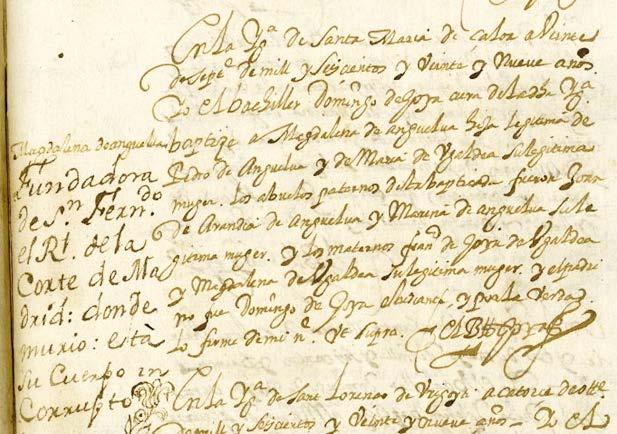 En la Yg.ª de Santa Maria de Galdacano a Veinte
de sept.e de mill y seiscientos y Veinte y Nueve años
Yo el bachiller Domingo de Goya cura de la dha Yg.ª
Magdalena de anguelua
baptize a Magdalena de anguelua hija legitima de
Pedro de Anguelua y de Maria de Ugaldea su legitima
muger. los abuelos paternos de la baptiçada fueron Joan
De Arandia de anguelua y Marina de anguelua su le
gitima muger. y los maternos fran.co de Goya de Ugaldea
y Magdalena de Ugaldea su legitima muger. y el padri
no fue Domingo de Goya y por la Verdad
lo firme de mi n.e Ut supra.
Fundadora
de S.n Fern.do
el R.l de la
Corte de Ma
drid: donde
murio: està
su Cuerpo in
Corrupto
En la Yg.ª de Sant Lorenço de a catorce de
de mill y seiscientos y Veinte y nueve años Yo el